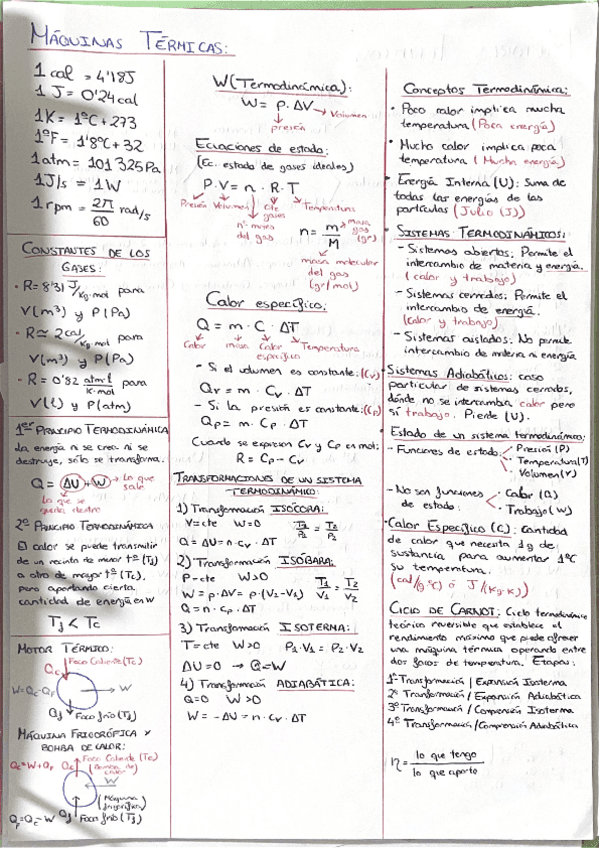 MÁQUINAS TÉRMICAS:
1 cal = 4'18J
1 J = 0'24 cal
1K = 1ºC + 273
1ºF = 1'8ºC + 32
1 atm = 101 325 Pa
1 J/s = 1W
1 rpm = 2π/60 rad/s
CONSTANTES DE LOS
GASES:
· R = 8'31 J/kg·mol para
V(m³) y P(Pa)
· R ≈ 2 cal/kg·mol para
V(m³) y P(Pa)
- R = 0'82 atm·l/K·mol para
V(l) y P(atm)
1er PRINCIPIO TERMODINÁMICA
La energía ni se crea ni se
destruye, sólo se transforma.
Q = ΔU + W → Lo que sale
Lo que se
queda dentro
2º PRINCIPIO TERMODINÁMICA
El calor se puede transmitir
de un recinto de menor tª (Tf)
a otro de mayor tª (Tc),
pero aportando cierta
cantidad de energía en W
Tf < Tc
MOTOR TÉRMICO:
Qc Foco Caliente (Tc)
W = Qc - QF → W
Qf Foco frío (Tf)
MÁQUINA FRIGORÍFICA Y
BOMBA DE CALOR:
Foco Caliente (Tc)
Qc = W + QF Qc (Bomba de calor)
W
(Máquina
frigorífica)
QF = Qc - W Qf Foco frío (Tf)
W (Termodinámica):
W = p · ΔV → Volumen
presión
Ecuaciones de estado:
(Ec. estado de gases ideales)
P · V = n · R · T
Presión Volumen Cte gases Temperatura
nº moles
del gas
n = m/M
masa gas (gr)
masa molecular
del gas
(gr/mol)
Calor específico:
Q = m · C · ΔT
Calor masa Calor específico Temperatura
- Si el volumen es constante: (Cv)
Qv = m · Cv · ΔT
- Si la presión es constante: (Cp)
Qp = m · Cp · ΔT
Cuando se expresan Cv y Cp en mol:
R = Cp - Cv
TRANSFORMACIONES DE UN SISTEMA
TERMODINÁMICO:
1) Transformación ISÓCORA:
V = cte W = 0 T1/P1 = T2/P2
Q = ΔU = n · Cv · ΔT
2) Transformación ISÓBARA:
P = cte W > 0 T1/V1 = T2/V2
W = p · ΔV = p · (V2 - V1)
Q = n · Cp · ΔT
3) Transformación ISOTERMA:
T = cte W > 0 P1 · V1 = P2 · V2
ΔU = 0 → Q = W
4) Transformación ADIABÁTICA:
Q = 0 W > 0
W = - ΔU = n · Cv · ΔT
Conceptos Termodinámica:
• Poco calor implica mucha
temperatura (Poca energía)
• Mucho calor implica poca
temperatura (Mucha energía)
• Energía Interna (U): Suma de
todas las energías de las
partículas (Julio (J))
• SISTEMAS TERMODINÁMICOS:
- Sistemas abiertos: Permite el
intercambio de materia y energía.
(calor y trabajo)
- Sistemas cerrados: Permite el
intercambio de energía.
(calor y trabajo)
- Sistemas aislados: No permite
intercambio de materia ni energía
• Sistemas Adiabáticos: caso
particular de sistemas cerrados,
dónde no se intercambia calor pero
sí trabajo. Pierde (U).
· Estado de un sistema termodinámico:
- Funciones de estado: Presión (P)
Temperatura (T)
Volumen (V)
- No son funciones Calor (Q)
de estado: Trabajo (W)
• Calor Específico (C): Cantidad
de calor que necesita 1g de
sustancia para aumentar 1ºC
su temperatura.
(cal/g·ºC) ó J/(kg·K))
CICLO DE CARNOT: Ciclo termodinámico
teórico reversible que establece el
rendimiento máximo que puede ofrecer
una máquina térmica operando entre
dos focos de temperatura. Etapas:
1ª Transformación / Expansión Isoterma
2ª Transformación / Expansión Adiabática
3ª Transformación / Compresión Isoterma
4ª Transformación / Compresión Adiabática
η = lo que tengo / lo que aporto